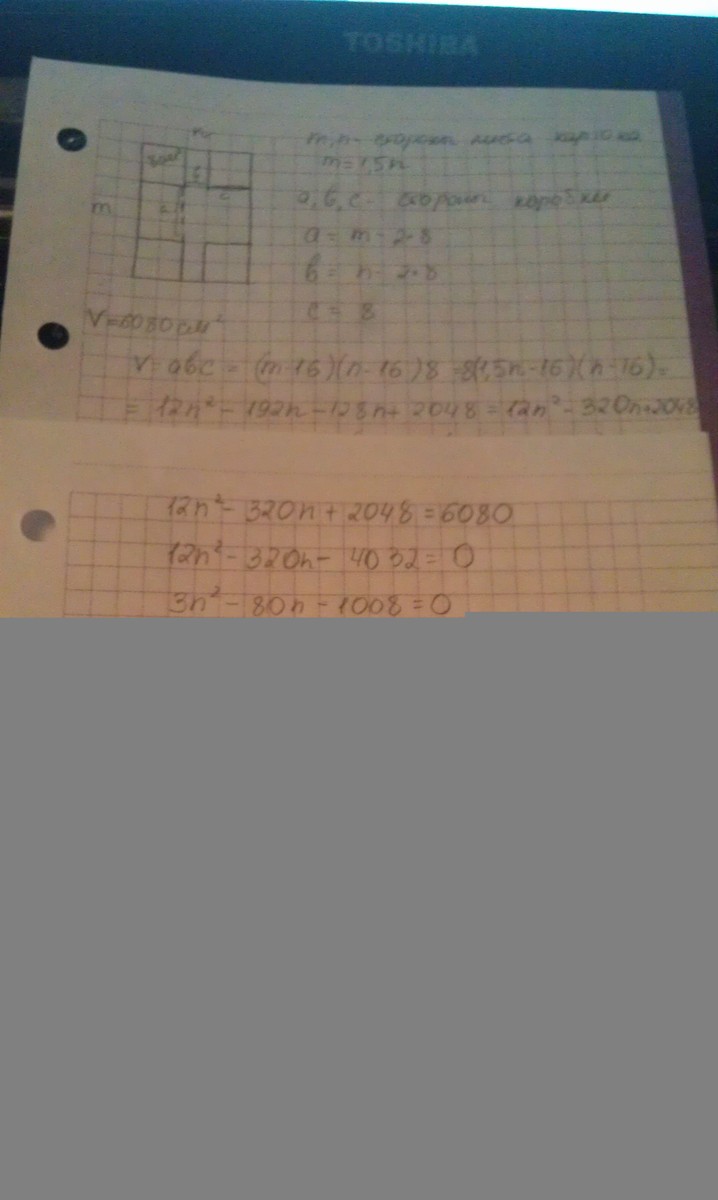 TOSHIBA
n
m, n - стороны листа картона
m = 1,5n
m
a, b, c - стороны коробки
a = m - 2·8
b = n - 2·8
c = 8
V=6080 см²
V = abc = (m-16)(n-16)8 =8(1,5n-16)(n-16)=
= 12n² - 192n - 128n + 2048 = 12n² - 320n+2048
12n² - 320n + 2048 = 6080
12n² - 320n - 4032 = 0
3n² - 80n - 1008 = 0